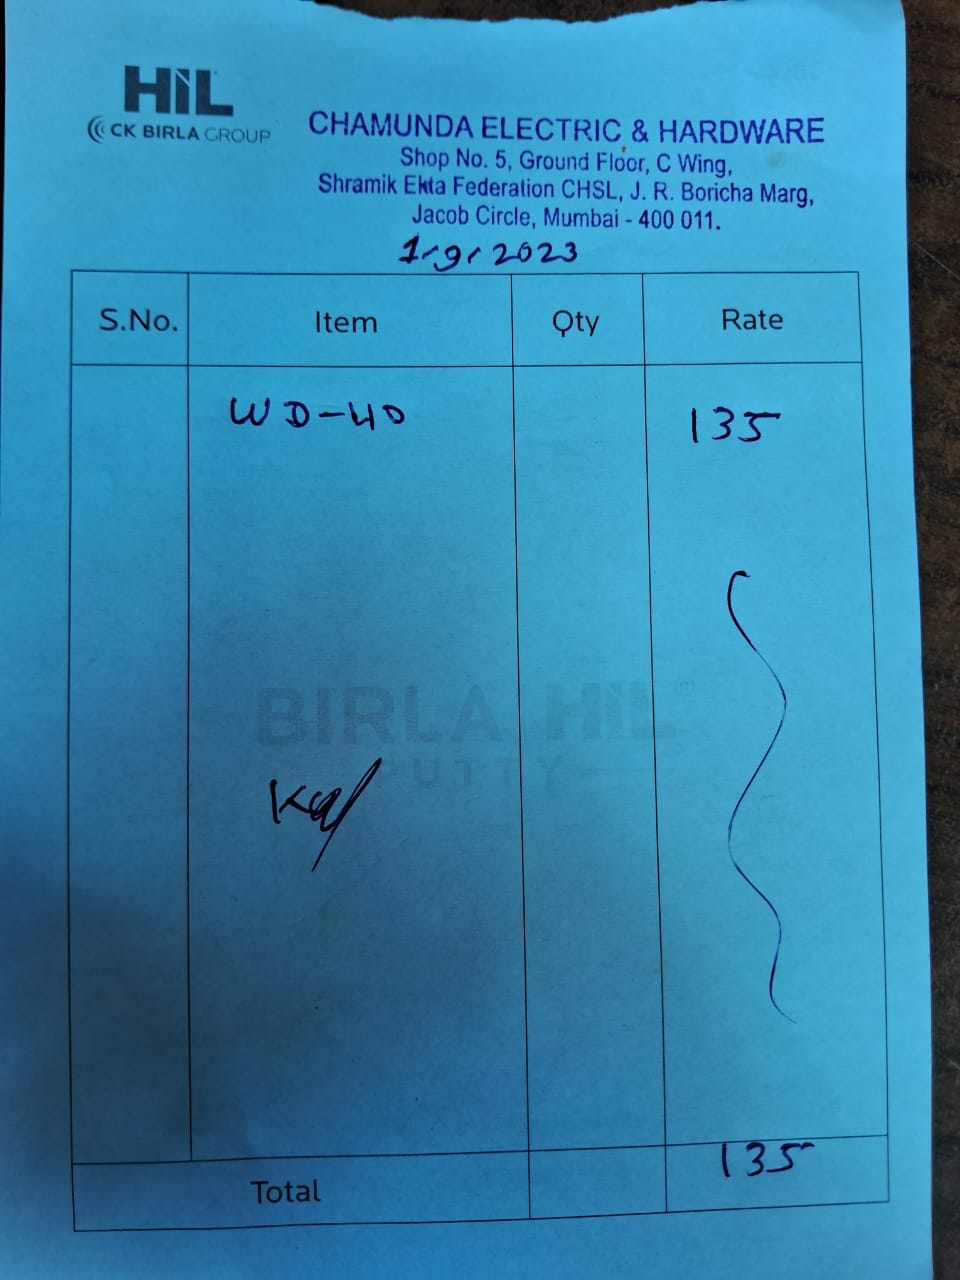 HiL
CK BIRLA GROUP
CHAMUNDA ELECTRIC & HARDWARE
Shop No. 5, Ground Floor, C Wing,
Shramik Ekta Federation CHSL, J. R. Boricha Marg,
Jacob Circle, Mumbai - 400 011.
1/9/2023
S.No. Item Qty Rate
WD-40 135
BIRLA HiL
PUTTY
Total 135